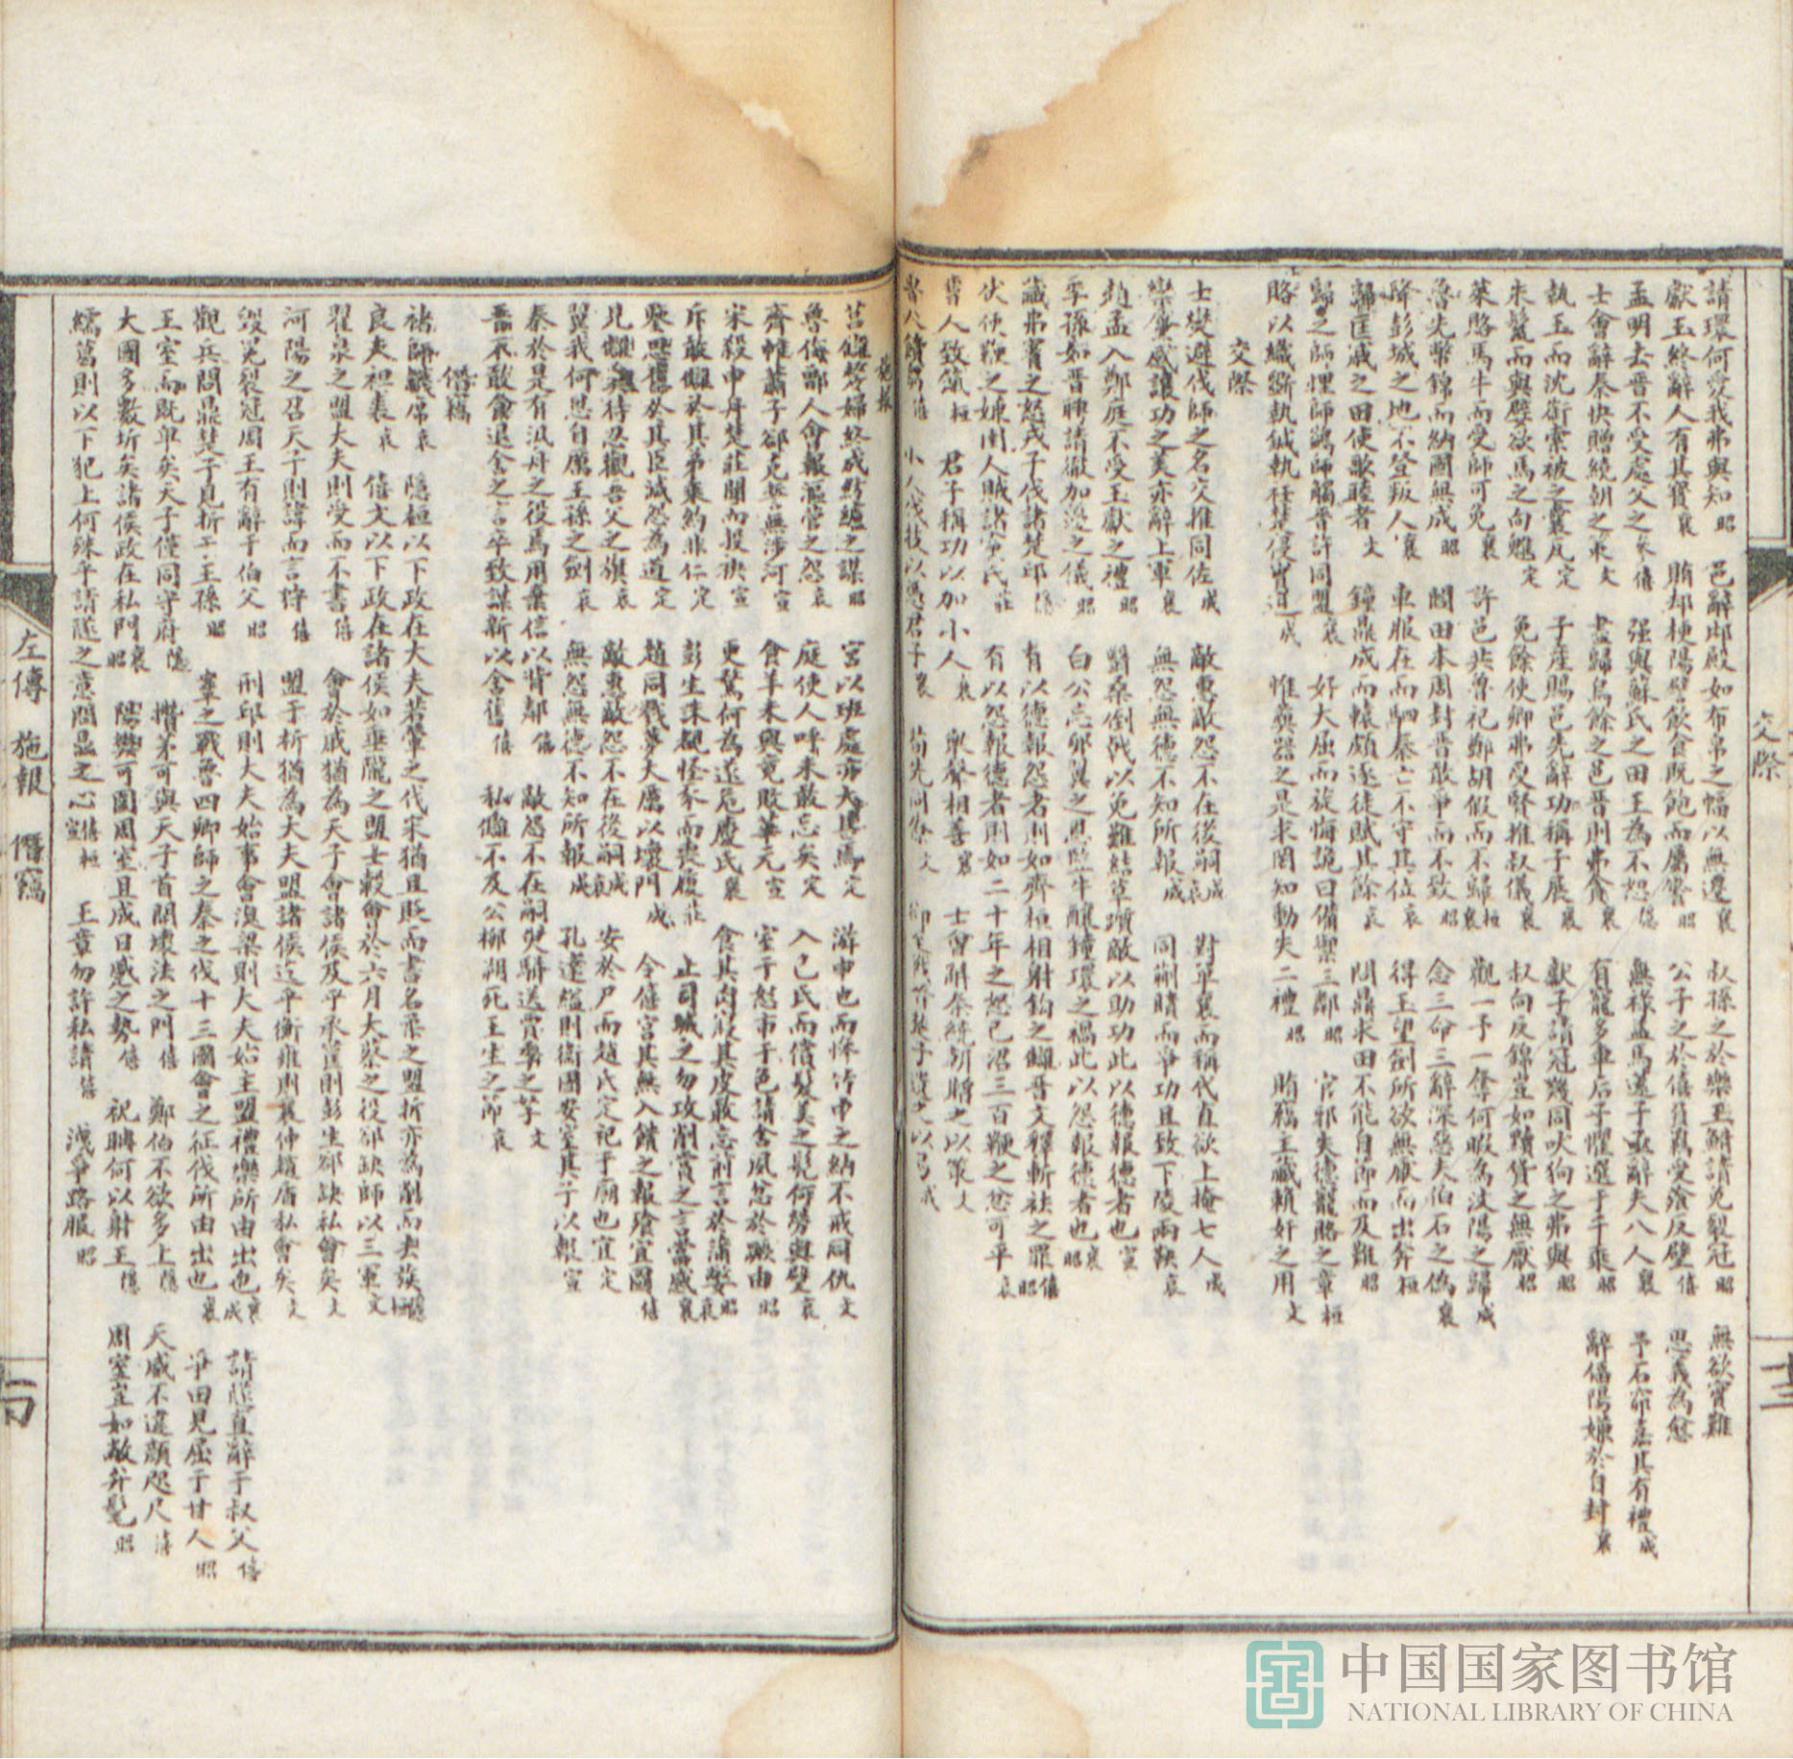 請環何愛我弗與知昭 邑辭邶殿如布帛之幅以無遷襄 叔孫之於樂王鮒請免裂冠昭 無欲實難
獻玉終辭人有其寶襄 賄却梗陽譬飲食既飽而屬饜昭 公子之於僖負羈受飧反璧僖 思義為愈
孟明去晉不受處父之 僖 强與蘇氏之田王為不恕隱 無祿孟馬還子 辭夫八人襄 予石窌嘉其有禮成
士會辭秦快贈繞朝之策文 盡歸烏餘之邑晉則弗貪襄 有寵多車后子懼選于千乘昭 辭偪陽嫌於自封襄
執玉而沈衛索被之囊瓦定 子產賜邑先辭功稱子展襄 獻子請冠幾同吠狗之弗與昭
朱鬣而與嬖欲馬之向魋定 免餘使卿弗受賢推叔儀襄 叔向反錦豈如黷貨之無厭昭
萊賂馬牛而受師可免襄 許邑共魯祀鄭胡假而不歸桓襄 觀一予一奪何暇為汶陽之歸成
魯先幣錦而納國無成昭 閻田本周封晉敢爭而不致昭 念三命三辭深惡夫伯石之偽襄
降彭城之地不登叛人襄 車服在而駟秦亡不守其位哀 得玉望劍所欲無厭而出奔桓
歸匡戚之田使歌睦者文 鐘鼎成而轅頗逐徒賦其餘哀 鬭鼎求田不能自節而及難昭
歸之師悝師鷁師觸晉許同盟襄 好大屈而旋悔詭曰備禦三鄰昭 官邪失德寵賂之章桓
賂以織斵執鍼執衽楚侵曾道成 惟蔡器之是求罔知動失二禮昭 賄鄢主藏賴奸之用文
交際
士燮避伐師之名交推同佐成 敵惠敵怨不在後嗣成哀 對單襄而稱代直欲上掩七人成
欒黶感讓功之美亦辭上軍襄 無怨無德不知所報成 同蒯聵而爭功且致下陵兩鞅哀
趙孟入鄭庭不受五獻之禮昭 翳桑倒戟以免難結草躓敵以助功此以德報德者也宣
季孫如晉聘請徹加籩之儀昭 白公忘卵翼之恩豎牛釀鐘環之禍此以怨報德者也昭哀
議弗賓之怒戎子伐諸楚邱隱 有以德報怨者則如齊桓相射鉤之讎晉文釋斬袪之罪僖昭
伏使鞭之嫌圉人賊諸 氏莊 有以怨報德者則如二十年之怒已沼三百鞭之忿可平哀
晉人致餼桓 君子稱功以加小人襄 衆聲相善襄 士會辭秦繞朝贈之以策文
施報
莒嫠嫠婦終成紡纑之謀昭 宮以班處亦大其馬定 游申也而悌 申之納不戒同仇文
魯侮鄙人會報漚菅之怨哀 庭使人呼未敢忘矣定 入己氏而償髮美之髢何勞與璧哀
齊帷蕭子郤克誓無涉河宣 食羊未與竟敗華元宣 室于怒市于色請舍夙忿於蹶由昭
宋殺申舟楚莊聞而投袂宣 更騖何為遂危慶氏襄 食其肉寢其皮敢忘前言於蒲嫳昭襄
斥敢讎於其弟棄約非仁定 彭生誅覩怪豕而喪屨莊 止司城之勿攻削賞之言當感襄
鑒思舊於其臣滅怨為道定 趙同戮夢大厲以壞門成 令僖宮其無入饋之報 宜圖僖
見讎 待忍觀吾父之旗哀 敵惠敵怨不在後嗣成哀 安於尸而趙氏定祀于廟也宜定
翼我何恩自厲王孫之劍哀 無怨無德不知所報成 孔達縊則衛國安室其子以報宣
秦於是有汎舟之役焉用棄信以背鄰僖 敵怨不在嗣臾駢送賈季之孥文
晉不敢貪退舍之言卒致謀新以舍舊僖 私讎不及公柳朔死王生之節哀
僭竊
褚師韈席哀 隱桓以下政在大夫若翬之代宋猶且貶而書名柔之盟折亦為削而去族桓隱
良夫袒裘哀 僖文以下政在諸侯如垂隴之盟士穀會於六月大蔡之役郤缺師以三軍文
翟泉之盟大夫則受而不書僖 會於戚猶為天子會諸侯及乎承筐則彭生郤缺私會矣文
河陽之召天子則諱而言狩僖 盟于析猶為大夫盟諸侯迄乎衡雍則襄仲趙盾私會矣文
毀冕裂冠周王有辭于伯父昭 刑邱則大夫始事會湨梁則大夫始主盟禮樂所由出也襄成 請隧直辭于叔父僖
觀兵問鼎楚子見折于王孫昭 鞌之戰魯四卿師之秦之伐十三國會之征伐所由出也襄 爭田見屈于甘人昭
王室而既卑矣天子僅同守府隱 攢茅可與天子首開壞法之門僖 鄭伯不欲多上隱 天威不違顏咫尺僖
大國多數圻矣諸侯政在私門襄昭 陽樊可圖周室且成日蹙之勢僖 祝聃何以射王隱 周室豈如敝弁髦昭
繻葛則以下犯上何殊乎請隧之意問鼎之心桓僖宣 王章勿許私請僖 淺爭路服昭
左傳 施報 僭竊
交際
十三